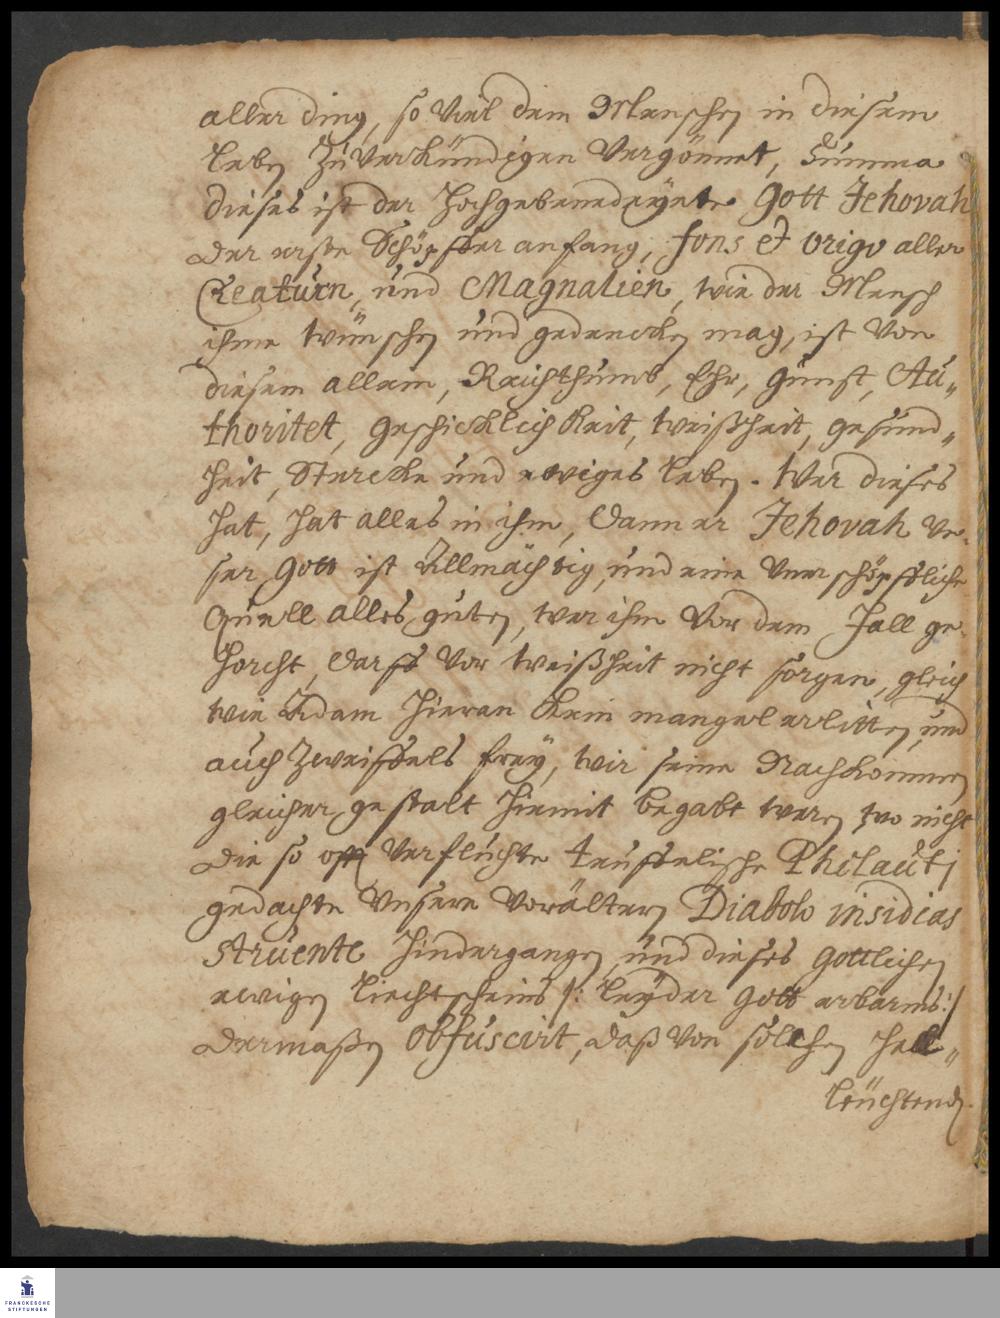 aller ding, so viel dem Menschen in diesem
leben zu verkündigen vergönnet, Summa
dieses ist der Hochgebenedeyete Gott Jehovah
der erste Schöpffer anfang, fons et origo aller
Creaturn, und Magnalien, wie der Mensch
ihme wünschen und gedencken mag, ist von
diesem allem, Reichthumb, Ehr, Gunst, Au„
thoritet, geschicklichkeit, weißheit, gesund„
heit, Stercke und ewiges leben. Wer dieses
hat, hat alles in ihm, dann er Jehovah un-
ser Gott ist Allmächtig, und eine unerschöpffliche
Quell alles guten, wer ihm vor dem Fall ge-
horcht, darff vor weißheit nicht sorgen, gleich
wie Adam hieran kein mangel erlitten, und
auch zweiffels frey, wir seine Nachkommen
gleicher gestalt hiemit begabt weren, wo nicht
die so offt verfluchte teuffelische Philauti
gedachte unsere vorältern Diabolo insidias
struente hindergangen, und dieses Göttlichen
ewigen liechtscheins /: leyder Gott erbarms :/
dermaßen obfuscirt, daß von solchen hell„
leüchtend.
FRANCKESCHE
STIFTUNGEN